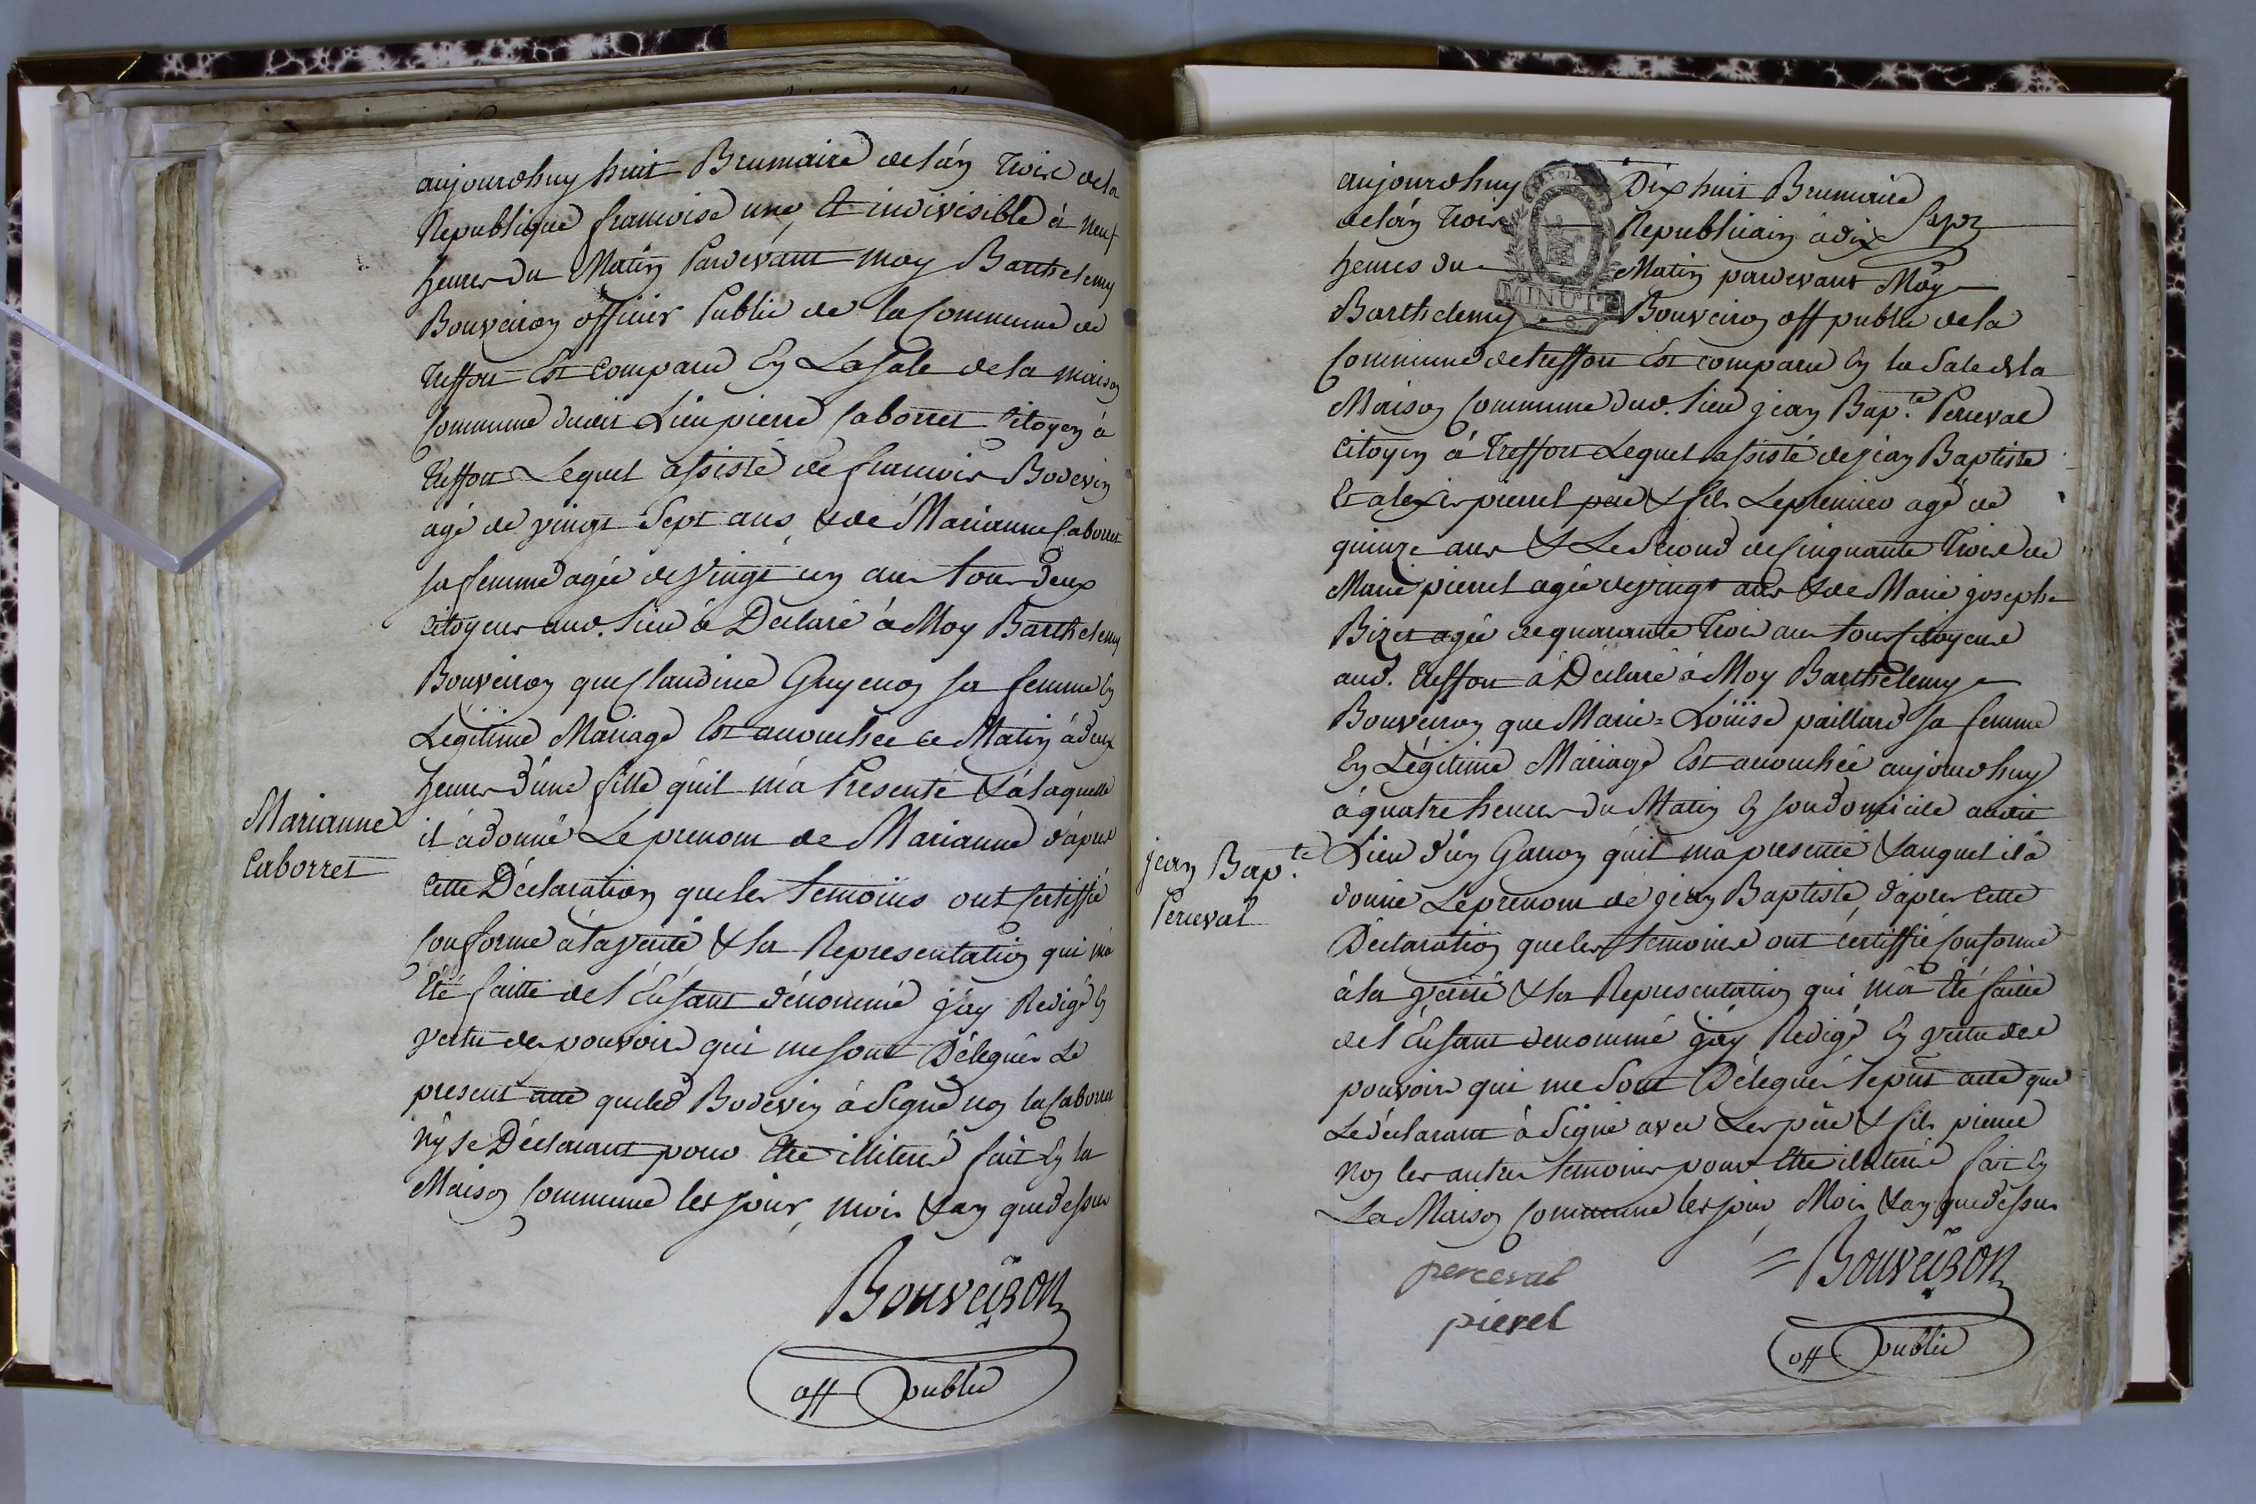 aujourdhuy huit Brumaire de lán trois de la
Republique francoise une et indivisible à neuf
heures du Matin Pardevant moy Barthelemy
Bouveiron officier Public de la Commune de
treffort Est Comparu En La Sale de la maison
Commune dudit Lieu pierre Caborret Citoyen à
treffort Lequel assisté de francois Bodevin
agé de vingt Sept ans, & de Marianne Caborret
sa femme agée de vingt un ans tous deux
citoyens aud. Lieu à Declaré à Moy Barthelemy
Bouveiron que Claudine Guyenon sa femme En
Légitime Mariage Est accouchée ce Matin à deux
heures d'une fille qu'il m'à Presenté & à laquelle
il à donné Le prenom de Marianne d'áprès
Marianne
Caborret
Cette Déclaration que les temoins ont Certiffié
Conforme à la verité & sur Representation qui m'a
Eté faitte de l'Enfant dénommé j'ay Redigé En
vertu des pouvoirs qui me sont Délegués Le
present acte que led Bodevin à Signé non la Caborret
ny le Déclarant pour Etre illiteré fait En la
Maison Commune les jour, mois & an que dessus
Bouveiron
off public
aujourdhuy Dix huit Brumaire
de lán trois Republicain à dix Sept
heures du Matin pardevant Moy
MINUTE
Barthelemy Bouveiron off public de la
Commune de treffort Est comparu En la Sale de la
Maison Commune dud. Lieu jean Bap.te Perceval
citoyen à Treffort Lequel assisté de jean Baptiste
Et alexis pierrel pere & fils Le premier agé de
quinze ans & Le Second de Cinquante trois de
Marie pierrel agée de vingt ans & de Marie josephe
Bizet agée de quarante trois ans tous Citoyens
aud. treffort à Déclaré à Moy Barthelemy
Bouveiron que Marie=Loüise paillard sa femme
En Légitime Mariage Est accouchée aujourdhuy
à quatre heures du Matin En son domicile audit
jean Bap.te
Perceval
Lieu d'un Garcon qu'il ma presenté & auquel il à
donné Le prenom de jean Baptiste, d'áprès Cette
Déclaration que les temoins ont certiffié Conforme
à la verité & sur Representation qui m'à Eté faitte
de l'Enfant denommé j'áy Redigé En vertu des
pouvoirs qui me Sont Délegués le pnt acte que
Le déclarant à Signé avec Les père & fils pierrel
Non les autres temoins pour Etre illiteré fait En
La Maison Commune les jour, Mois & an que dessus
perceval
pierel
Bouveiron
off public